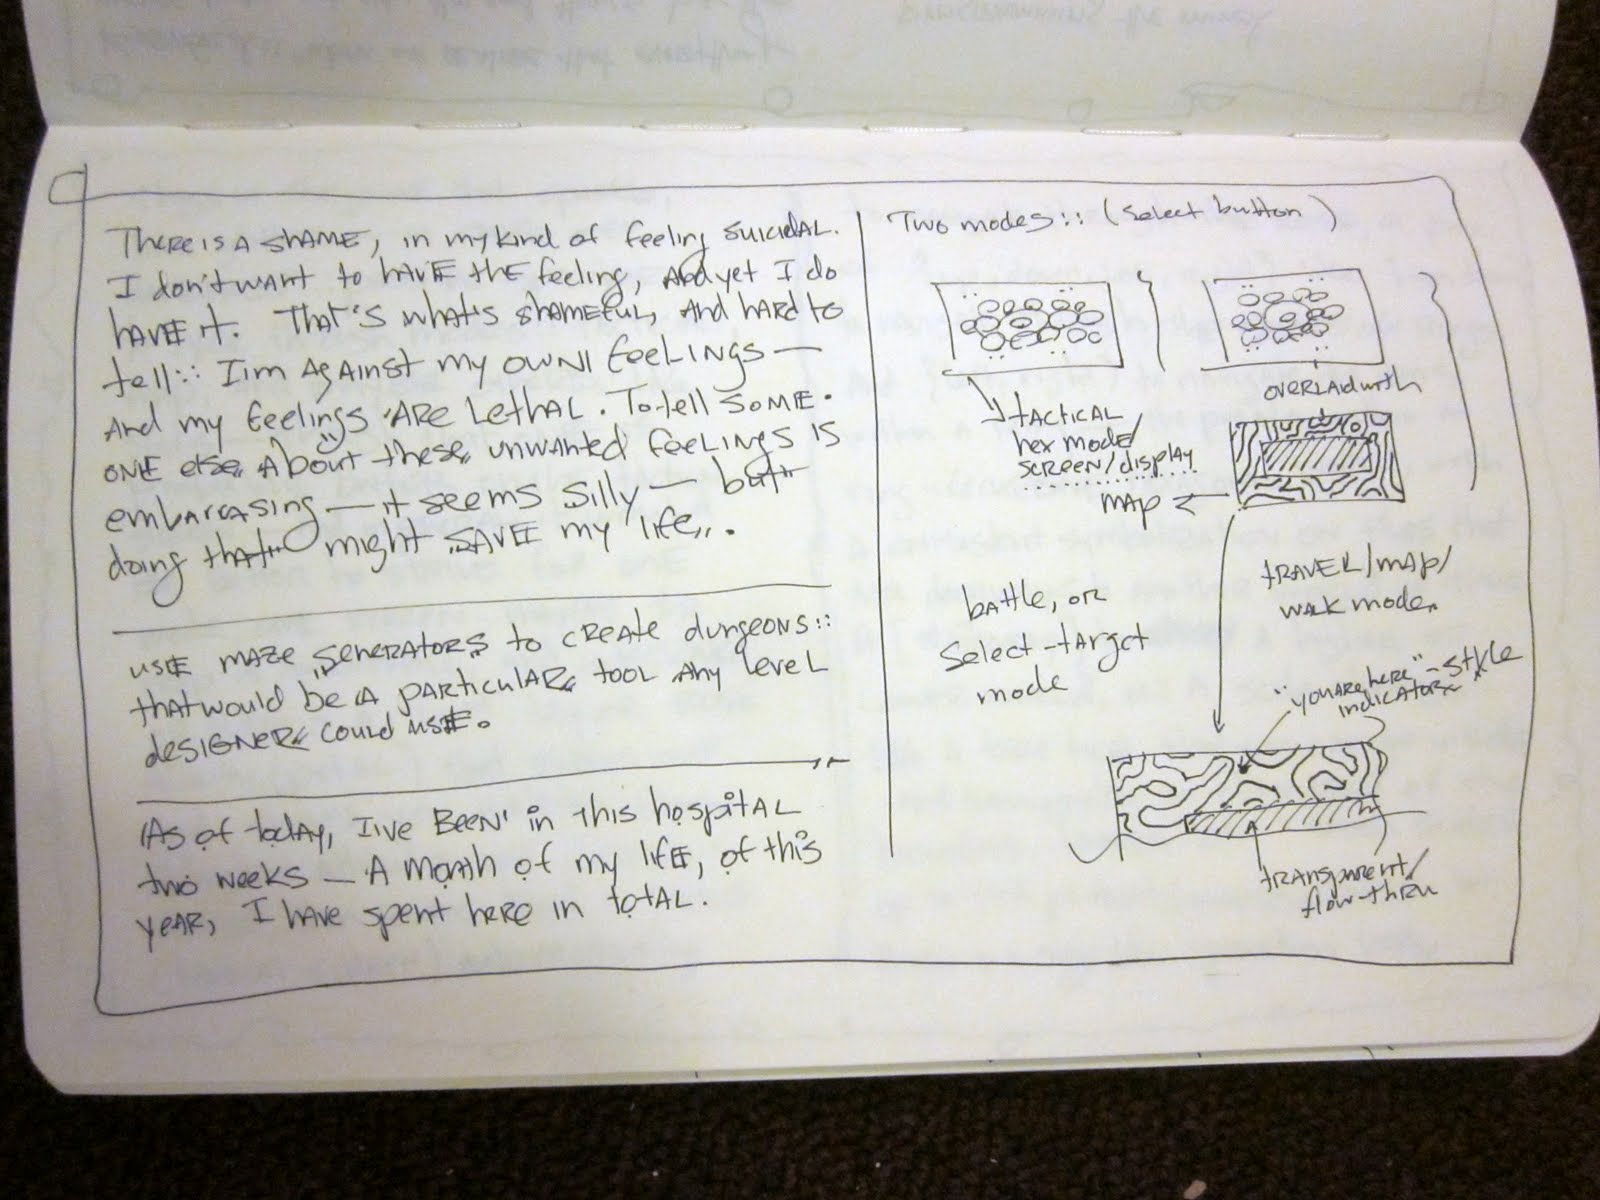 There is a shame, in my kind of feeling suicidal.
I don't want to have the feeling, and yet I do
have it. That's what's shameful, and hard to
tell:: I'm against my own feelings —
And my feelings are lethal. To tell some-
one else about these unwanted feelings is
embarcasing — it seems silly — but
doing that might save my life.
use maze generators to create dungeons::
that would be a particular tool any level
designer could use.
As of today, I've been in this hospital
two weeks — A month of my life, of this
year, I have spent here in total.
Two modes:: (select button)
overlaid with
tactical
hex mode/
screen/display
map
battle, or
select-target
mode
travel/map/
walk mode
"you are here"-style
indicator
transparent/
flow-thru